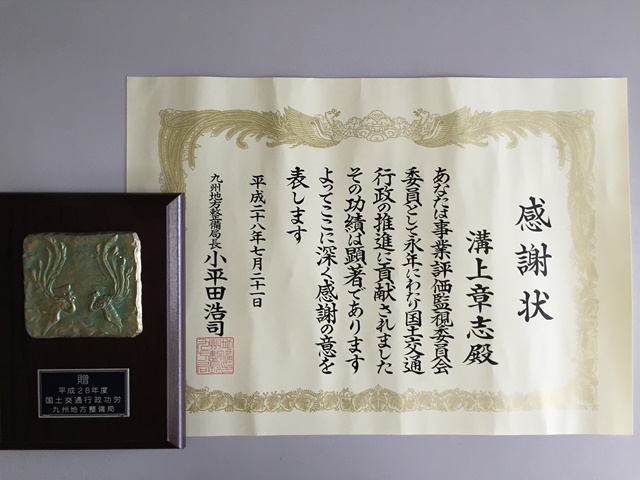 感謝状
溝上章志殿
あなたは事業評価監視委員会
委員として永年にわたり国土交通
行政の推進に貢献されました
その功績は顕著であります
よってここに深く感謝の意を
表します
平成二十八年七月二十一日
九州地方整備局長 小平田浩司
贈
平成28年度
国土交通行政功労
九州地方整備局